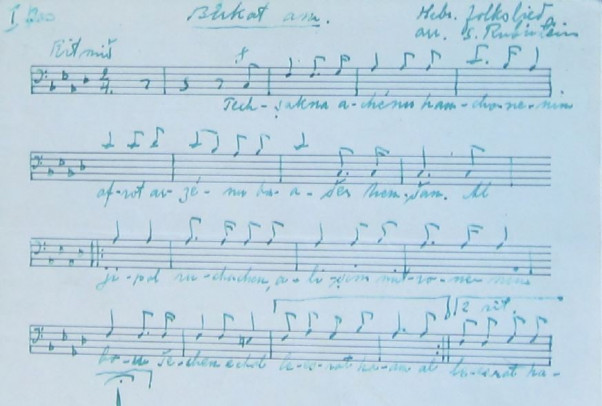 I Bas Birkat am. Hebr. folkslied
arr. S. Rubinstein
Ritmis
Tech - sakna a-chénu ham - cho-ne-nim
af-rot ar-zé-nu ba-a-šer hem šam. Al
ji-pol ru-chachem, a-li-zim mit-ro-ne-nim
bo-u še-chem echd le-es-rat ha-am al le-esrat ha-
2 rit.